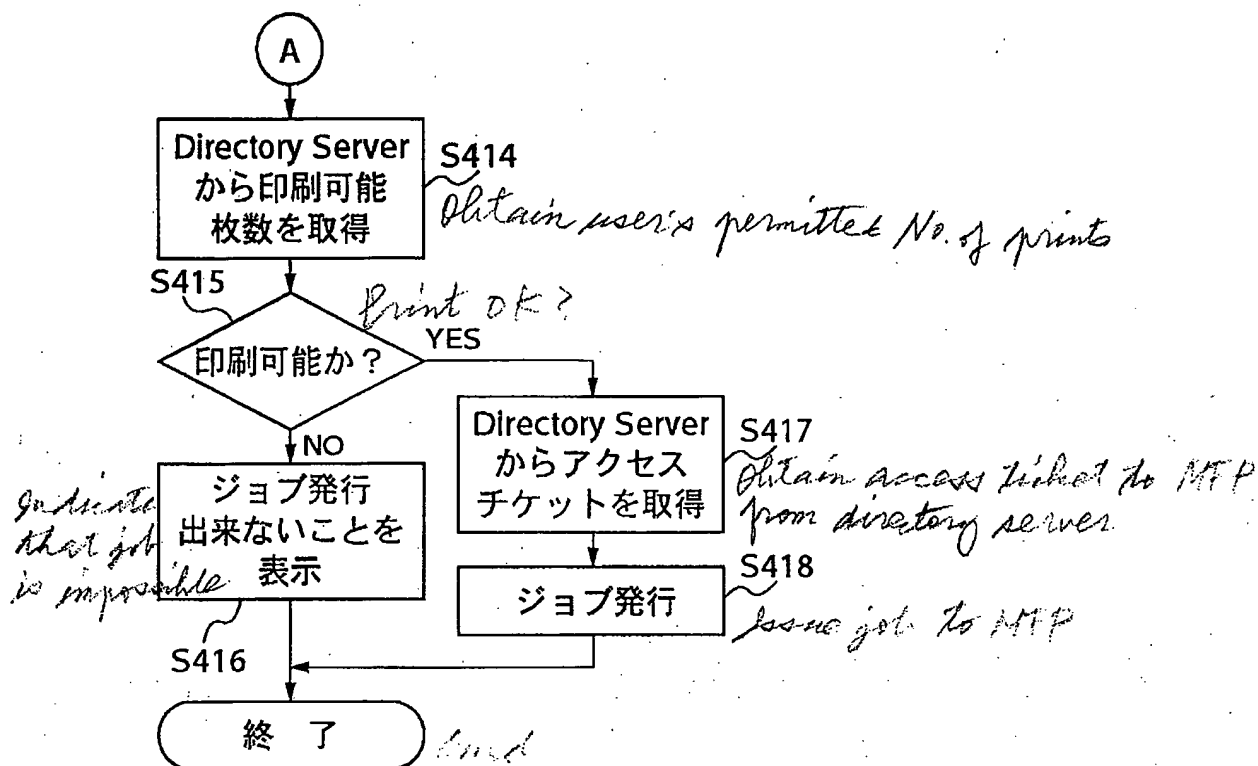 A
Directory Server
から印刷可能
枚数を取得
S414
Obtain user's permitted No. of prints
S415
Print OK?
印刷可能か?
YES
NO
Directory Server
からアクセス
チケットを取得
S417
Obtain access ticket to MFP
from directory server
ジョブ発行
出来ないことを
表示
Indicate
that job
is impossible
S416
ジョブ発行
S418
Issue job to MFP
終 了
End